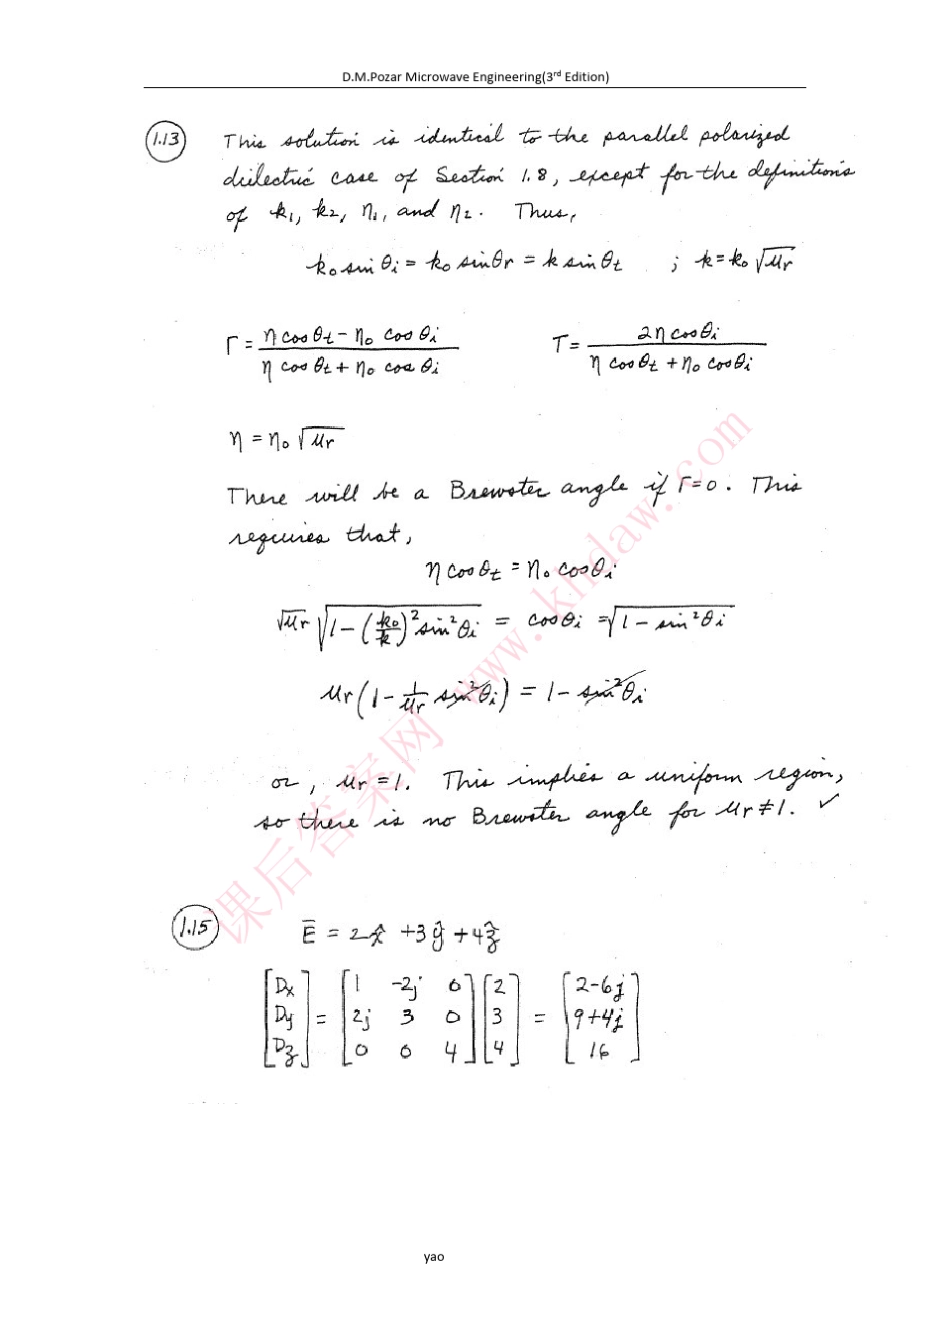 D.M.Pozar Microwave Engineering(3rd Edition)
1.13 This solution is identical to the parallel polarized
dielectric case of Section 1.8, except for the definitions
of k₁, k₂, η₁, and η₂. Thus,
k₀ sin θi = k₀ sin θr = k sin θt ; k = k₀ √μr
Γ = (η cos θt − η₀ cos θi) / (η cos θt + η₀ cos θi)    T = 2η cos θi / (η cos θt + η₀ cos θi)
η = η₀ √μr
There will be a Brewster angle if Γ=0. This
requires that,
η cos θt = η₀ cos θi
√μr √(1 − (k₀/k)² sin² θi) = cos θi = √(1 − sin² θi)
μr (1 − 1/μr sin² θi) = 1 − sin² θi
or, μr = 1. This implies a uniform region,
so there is no Brewster angle for μr ≠ 1. ✓
1.15 Ē = 2x̂ + 3ŷ + 4ẑ
[Dx] [1 -2j 0] [2] [2-6j]
[Dy] = [2j 3 0] [3] = [9+4j]
[Dz] [0 0 4] [4] [16]
课后答案网 www.khdaw.com
yao